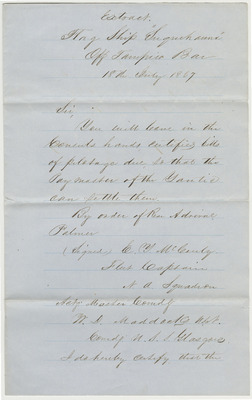 Extract.
Flag Ship Susquehanna
Off Tampico Bar
18th July 1867
Sir,
You will leave in the
Consuls hands certified bills
of pilotage due so that the
Paymaster of the Yantic
can settle them.
By order of Rear Admiral
Palmer
(Signed) E. P. McCrea
Fleet Captain
N. A. Squadron
Actg Master Comdg
W. D. Maddocks
Comdg U. S. S. Glasgow
I do hereby certify that the